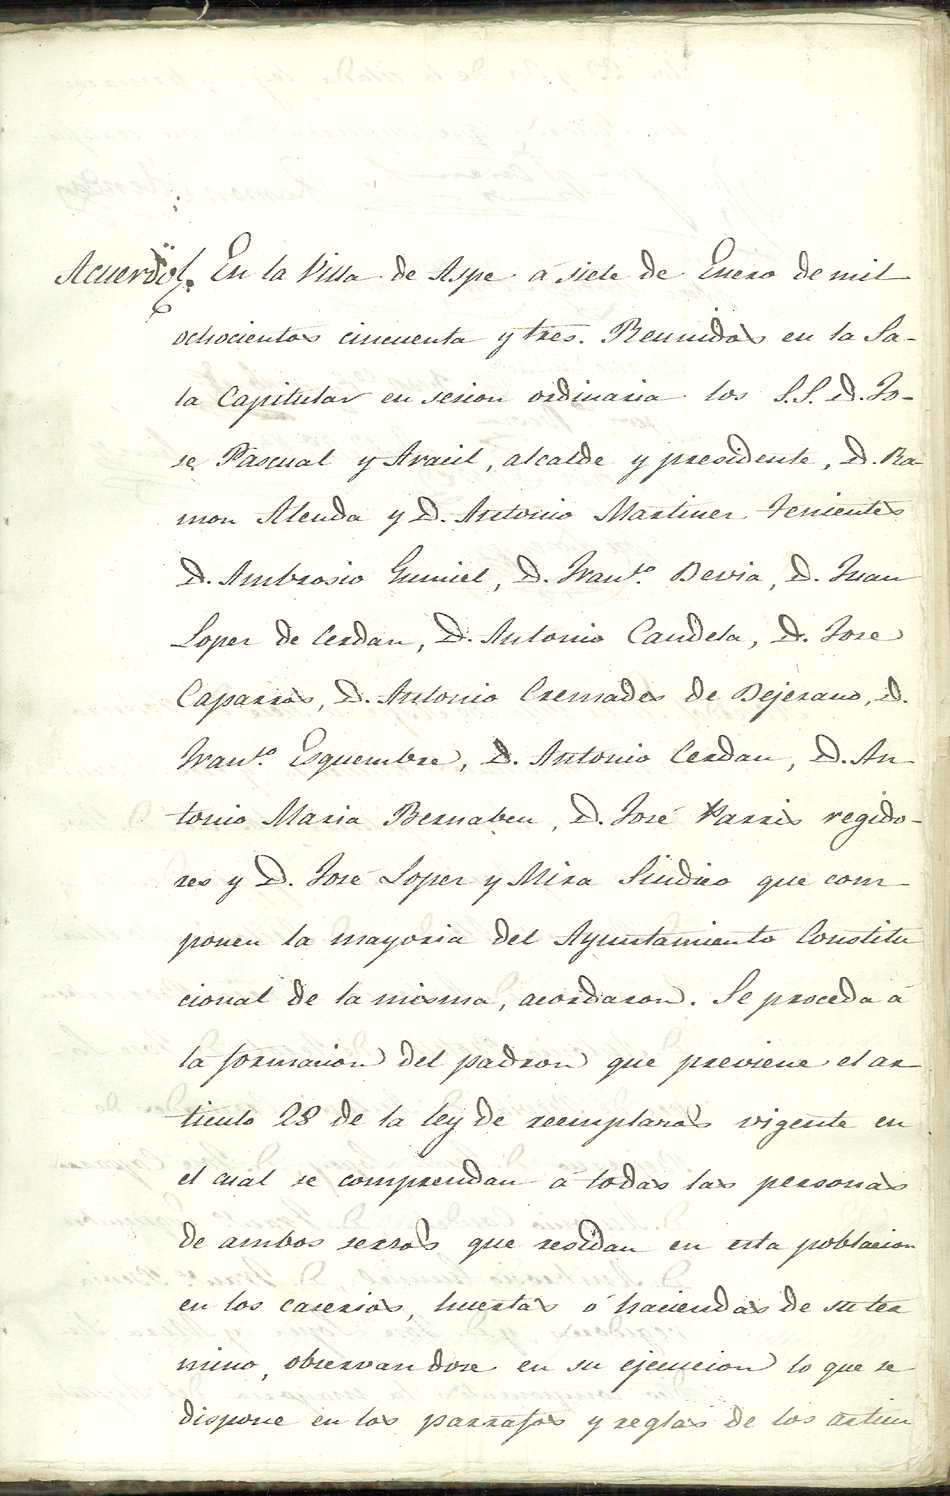 Acuerdo. En la Villa de Aspe á siete de Enero de mil
ochocientos cincuenta y tres. Reunidos en la Sa-
la Capitular en sesion ordinaria los S.S. D. Jo-
se Pascual y Aracil, alcalde y presidente, D. Ra-
mon Alenda y D. Antonio Martinez tenientes
D. Ambrosio Gumiel, D. Fran.co Devia, D. Juan
Lopez de Cerdan, D. Antonio Candela, D. Jose
Caparros, D. Antonio Cremades de Bejerano, D.
Fran.co Esquembre, D. Antonio Cerdan, D. An
tonio Maria Bernabeu, D. José Parris regido-
res y D. José Lopez y Mira Sindico que com-
ponen la mayoria del Ayuntamiento Constitu
cional de la misma, acordaron. Se proceda á
la formacion del padron que previene el ar
ticulo 28 de la ley de reemplazos vigente en
el cual se comprendan á todas las personas
de ambos sexsos que residan en esta poblacion
en los caserios, huertas ó haciendas de su ter
mino, observandose en su ejecucion lo que se
dispone en los parrafos y reglas de los articu